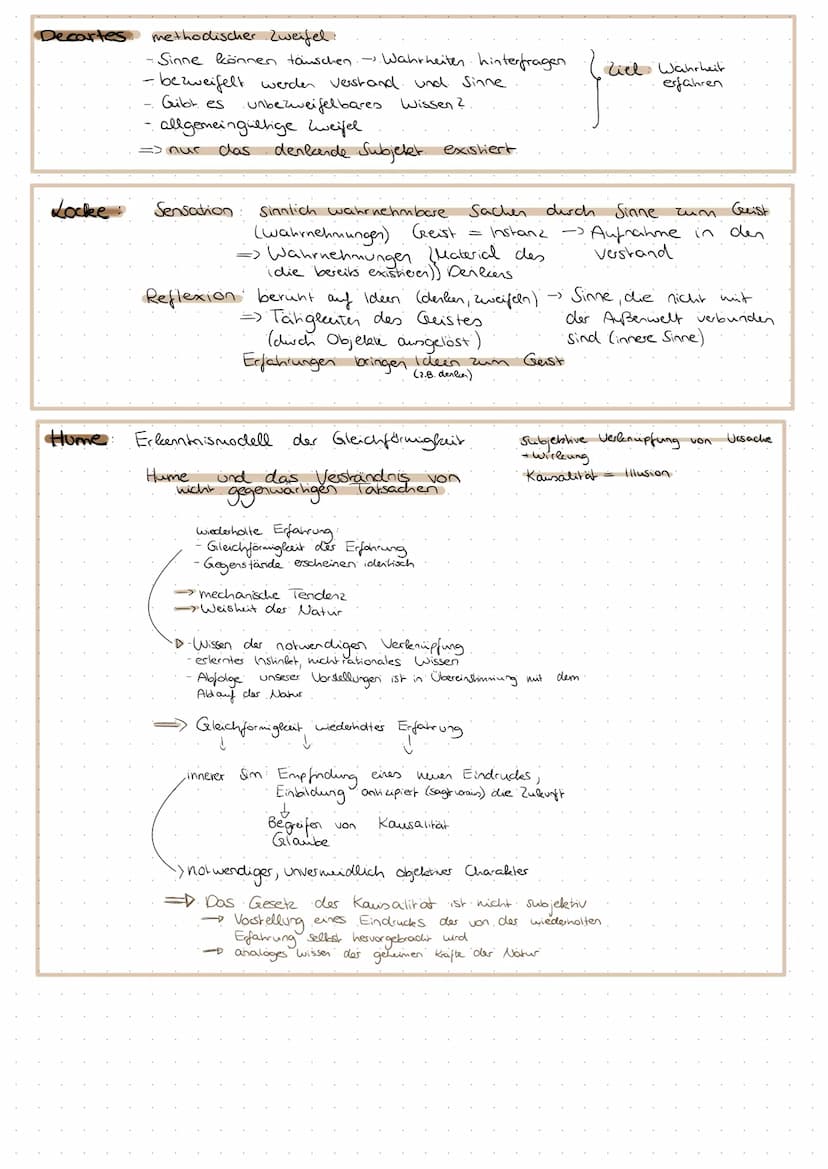 Decartes: methodischer Zweifel:
- Sinne können täuschen → Wahrheiten hinterfragen
- bezweifelt werden Verstand und Sinne
- Gibt es unbezweifelbares Wissen?
- allgemeingültige Zweifel
Ziel: Wahrheit
erfahren
=> nur das denkende Subjekt existiert
Locke: Sensation: sinnlich wahrnehmbare Sachen durch Sinne zum Geist
(Wahrnehmungen) Geist = Instanz → Aufnahme in den
Verstand
=> Wahrnehmungen (Material des
(die bereits existieren)) Denkens
Reflexion: beruht auf Ideen (denken, zweifeln) → Sinne, die nicht mit
der Außenwelt verbunden
sind (innere Sinne)
=> Tätigkeiten des Geistes
(durch Objekte ausgelöst)
Erfahrungen bringen Ideen zum Geist
(z.B. denken)
Hume: Erkenntnismodell der Gleichförmigkeit
subjektive Verknüpfung von Ursache
+ Wirkung
Kausalität = Illusion
Hume und das Verständnis von
nicht gegenwärtigen Tatsachen
wiederholte Erfahrung:
- Gleichförmigkeit der Erfahrung
- Gegenstände erscheinen identisch
→ mechanische Tendenz
→ Weisheit der Natur
- Wissen der notwendigen Verknüpfung
- erlernter Instinkt, nicht rationales Wissen
- Abfolge unserer Vorstellungen ist in Übereinstimmung mit dem
Ablauf der Natur
=> Gleichförmigkeit wiederholter Erfahrung
↓ ↓ ↓
innerer Sinn: Empfindung eines neuen Eindruckes,
Einbildung antizipiert (sagt voraus) die Zukunft
↓
Begreifen von Kausalität
Glaube
> notwendiger, unvermeidlich objektiver Charakter
=> Das Gesetz der Kausalität ist nicht subjektiv
→ Vorstellung eines Eindrucks der von der wiederholten
Erfahrung selbst hervorgebracht wird
→ analoges Wissen der geheimen Kräfte der Natur